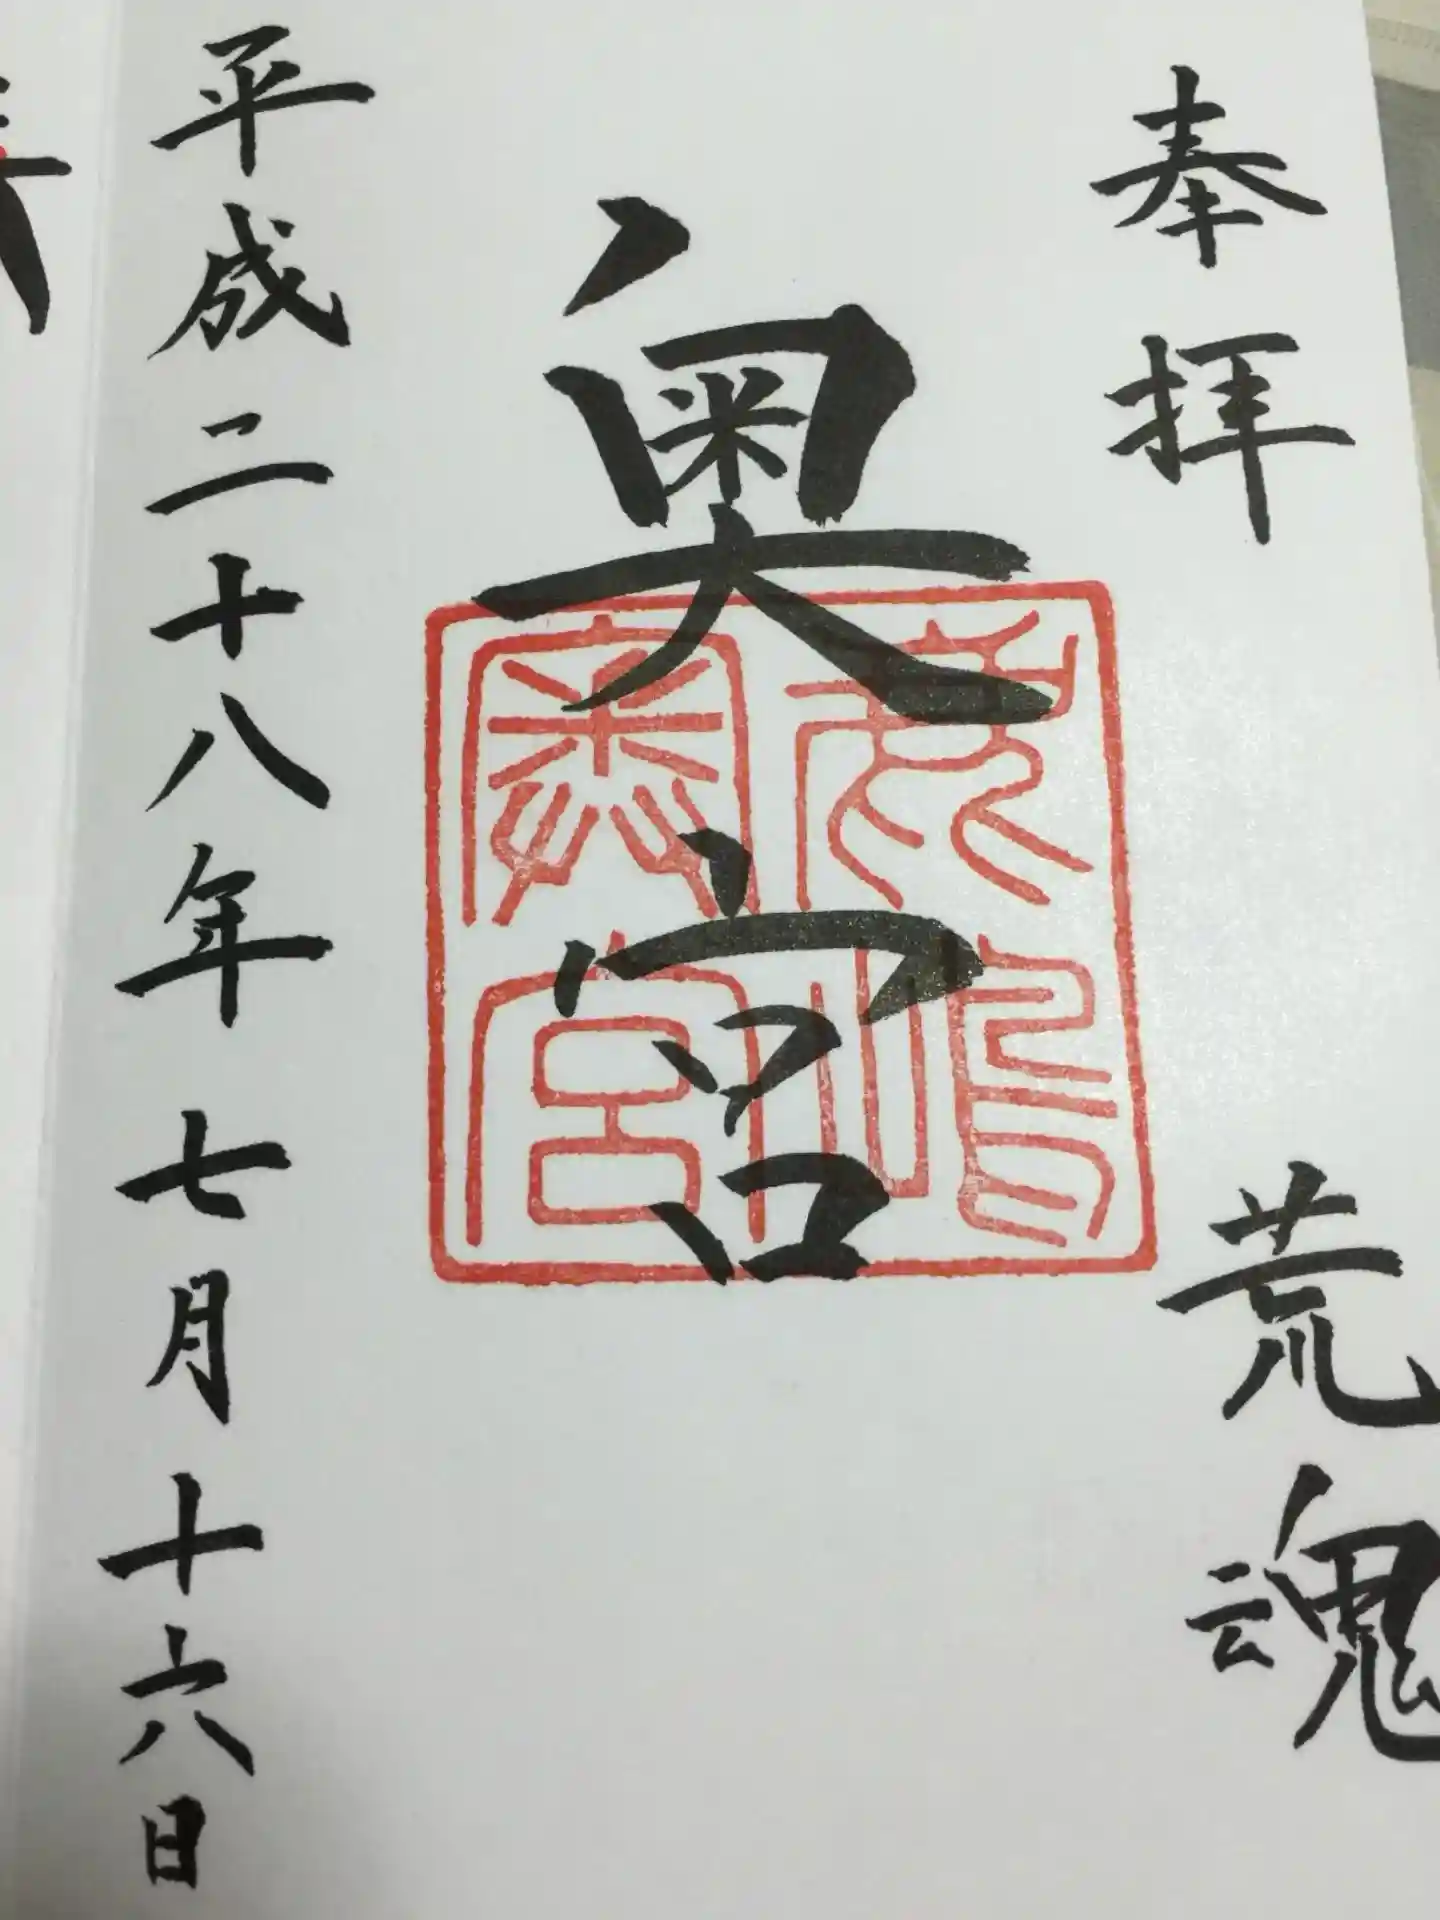 奉拝 荒魂
奥宮
鹿嶋
奥宮
平成二十八年七月十六日